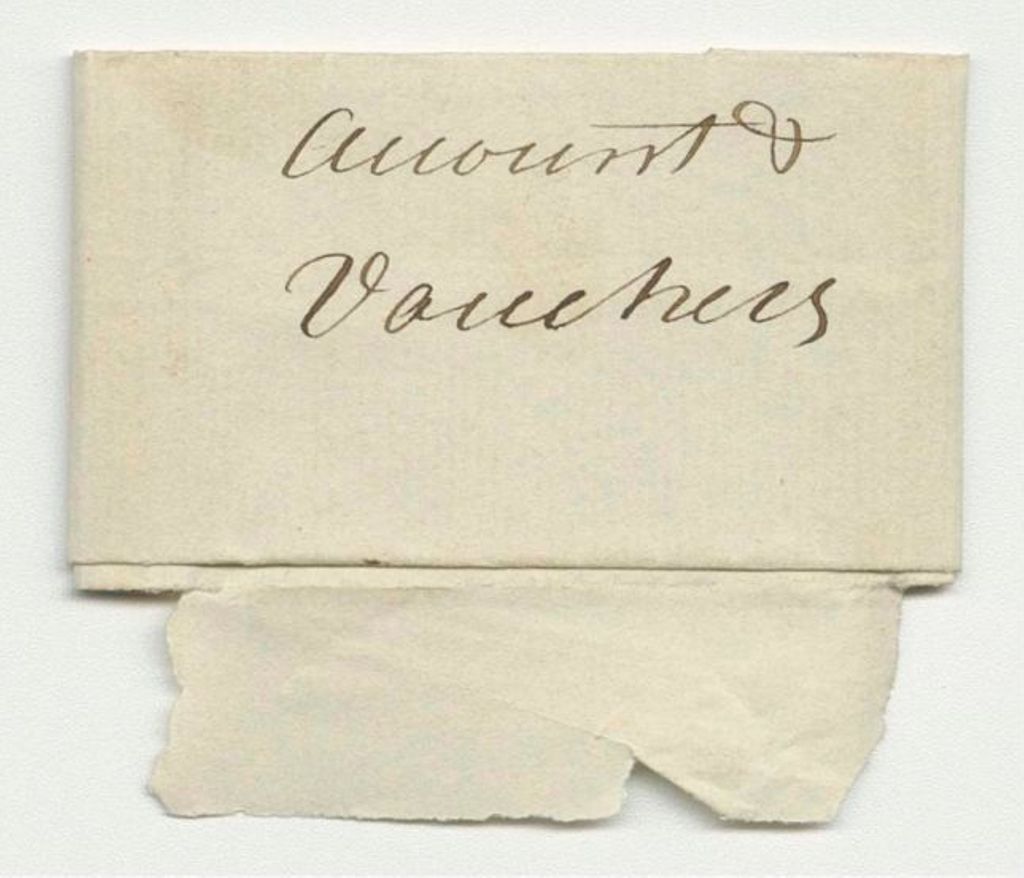 Account &
Vouchers